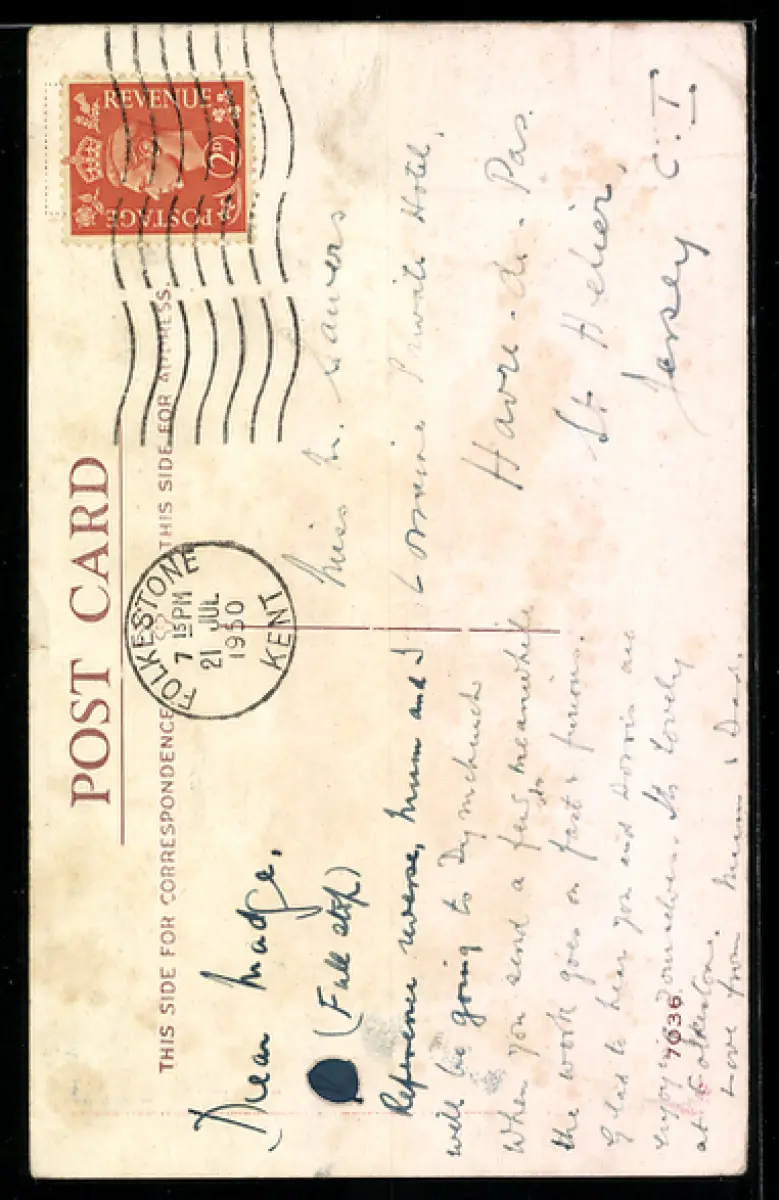 POST CARD
THIS SIDE FOR CORRESPONDENCE
THIS SIDE FOR ADDRESS.
REVENUE
2D
POSTAGE
FOLKESTONE
7 15 PM
21 JUL
1950
KENT
Dear Madge,
(Full stop)
Reference reverse, Mum and I
will be going to Dymchurch
When you send a few meanwhile
the work goes on fast & furious.
Glad to hear you and Dorris are
enjoying yourselves. Its lovely
at Folkestone.
Love from Mum & Dad.
7636
Miss M.
Lorraine Private Hotel,
Havre-de-Pas.
St Helier,
Jersey C.I.